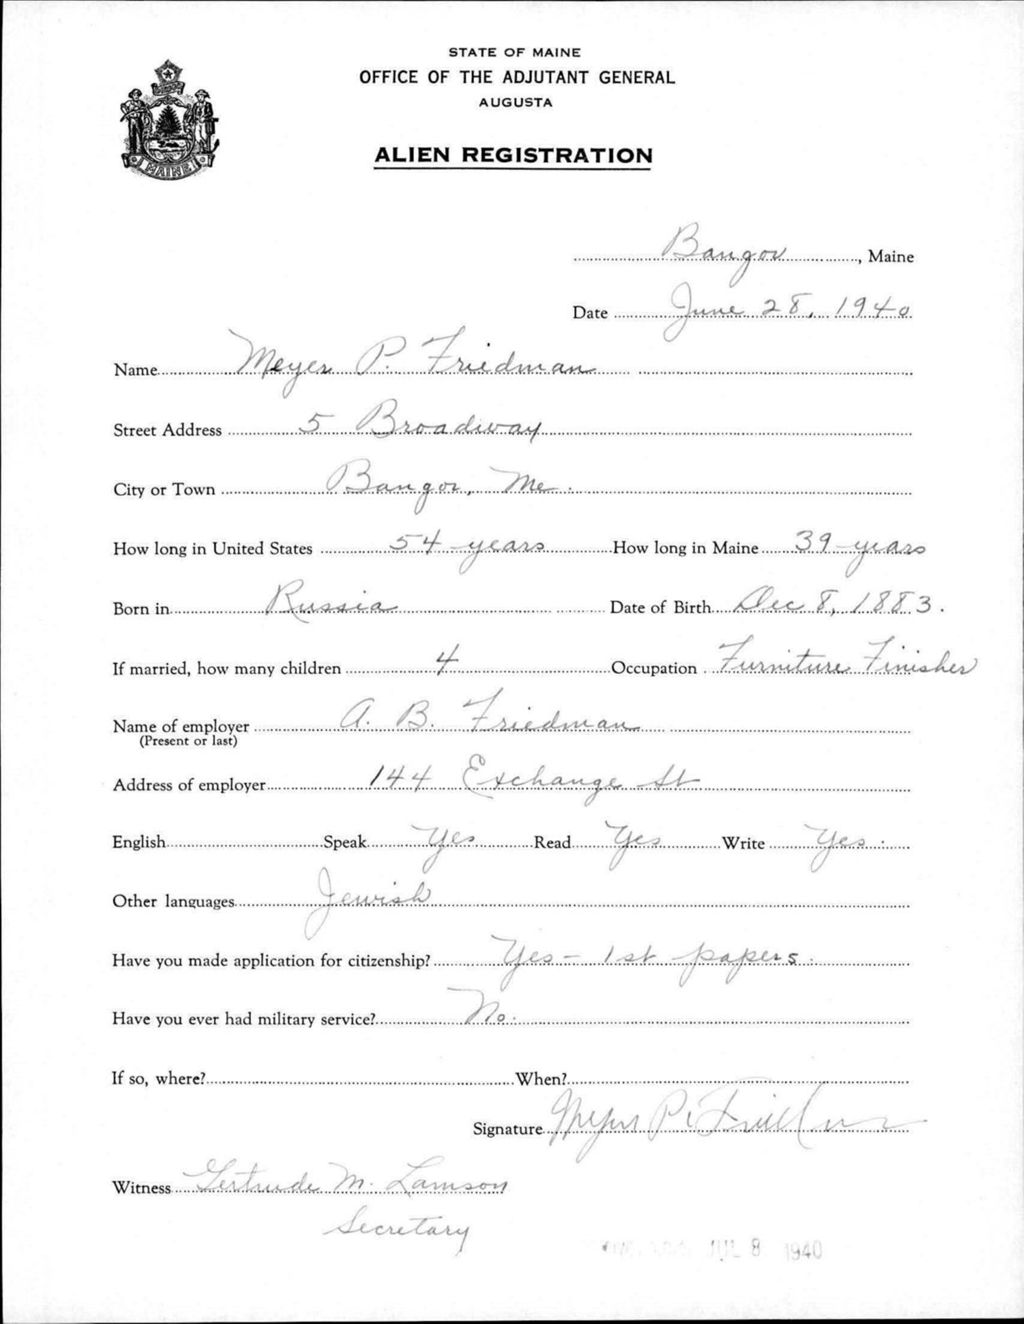 STATE OF MAINE
OFFICE OF THE ADJUTANT GENERAL
AUGUSTA
ALIEN REGISTRATION
MAINE
Bangor, Maine
Date June 28, 1940
Name Meyer P. Friedman
Street Address 5 Broadway
City or Town Bangor, Me.
How long in United States 54 years How long in Maine 39 years
Born in Russia Date of Birth Dec 8, 1883.
If married, how many children 4 Occupation Furniture Finisher
Name of employer A. B. Friedman
(Present or last)
Address of employer 144 Exchange St
English Speak Yes Read Yes Write Yes.
Other languages Jewish
Have you made application for citizenship? Yes - 1st papers.
Have you ever had military service? No.
If so, where? When?
Signature Meyer P. Friedman
Witness Gertrude M. Lamson
Secretary
JUL 8 1940